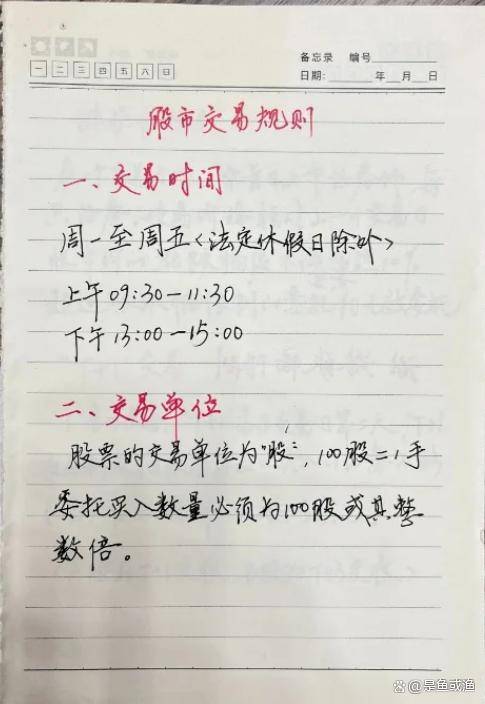 备忘录 编号
一 二 三 四 五 六 日
日期: 年 月 日
股市交易规则
一、交易时间
周一至周五<法定休假日除外>
上午09:30—11:30
下午13:00—15:00
二、交易单位
股票的交易单位为"股",100股=1手
委托买入数量必须为100股或其整
数倍。
@是鱼或渔